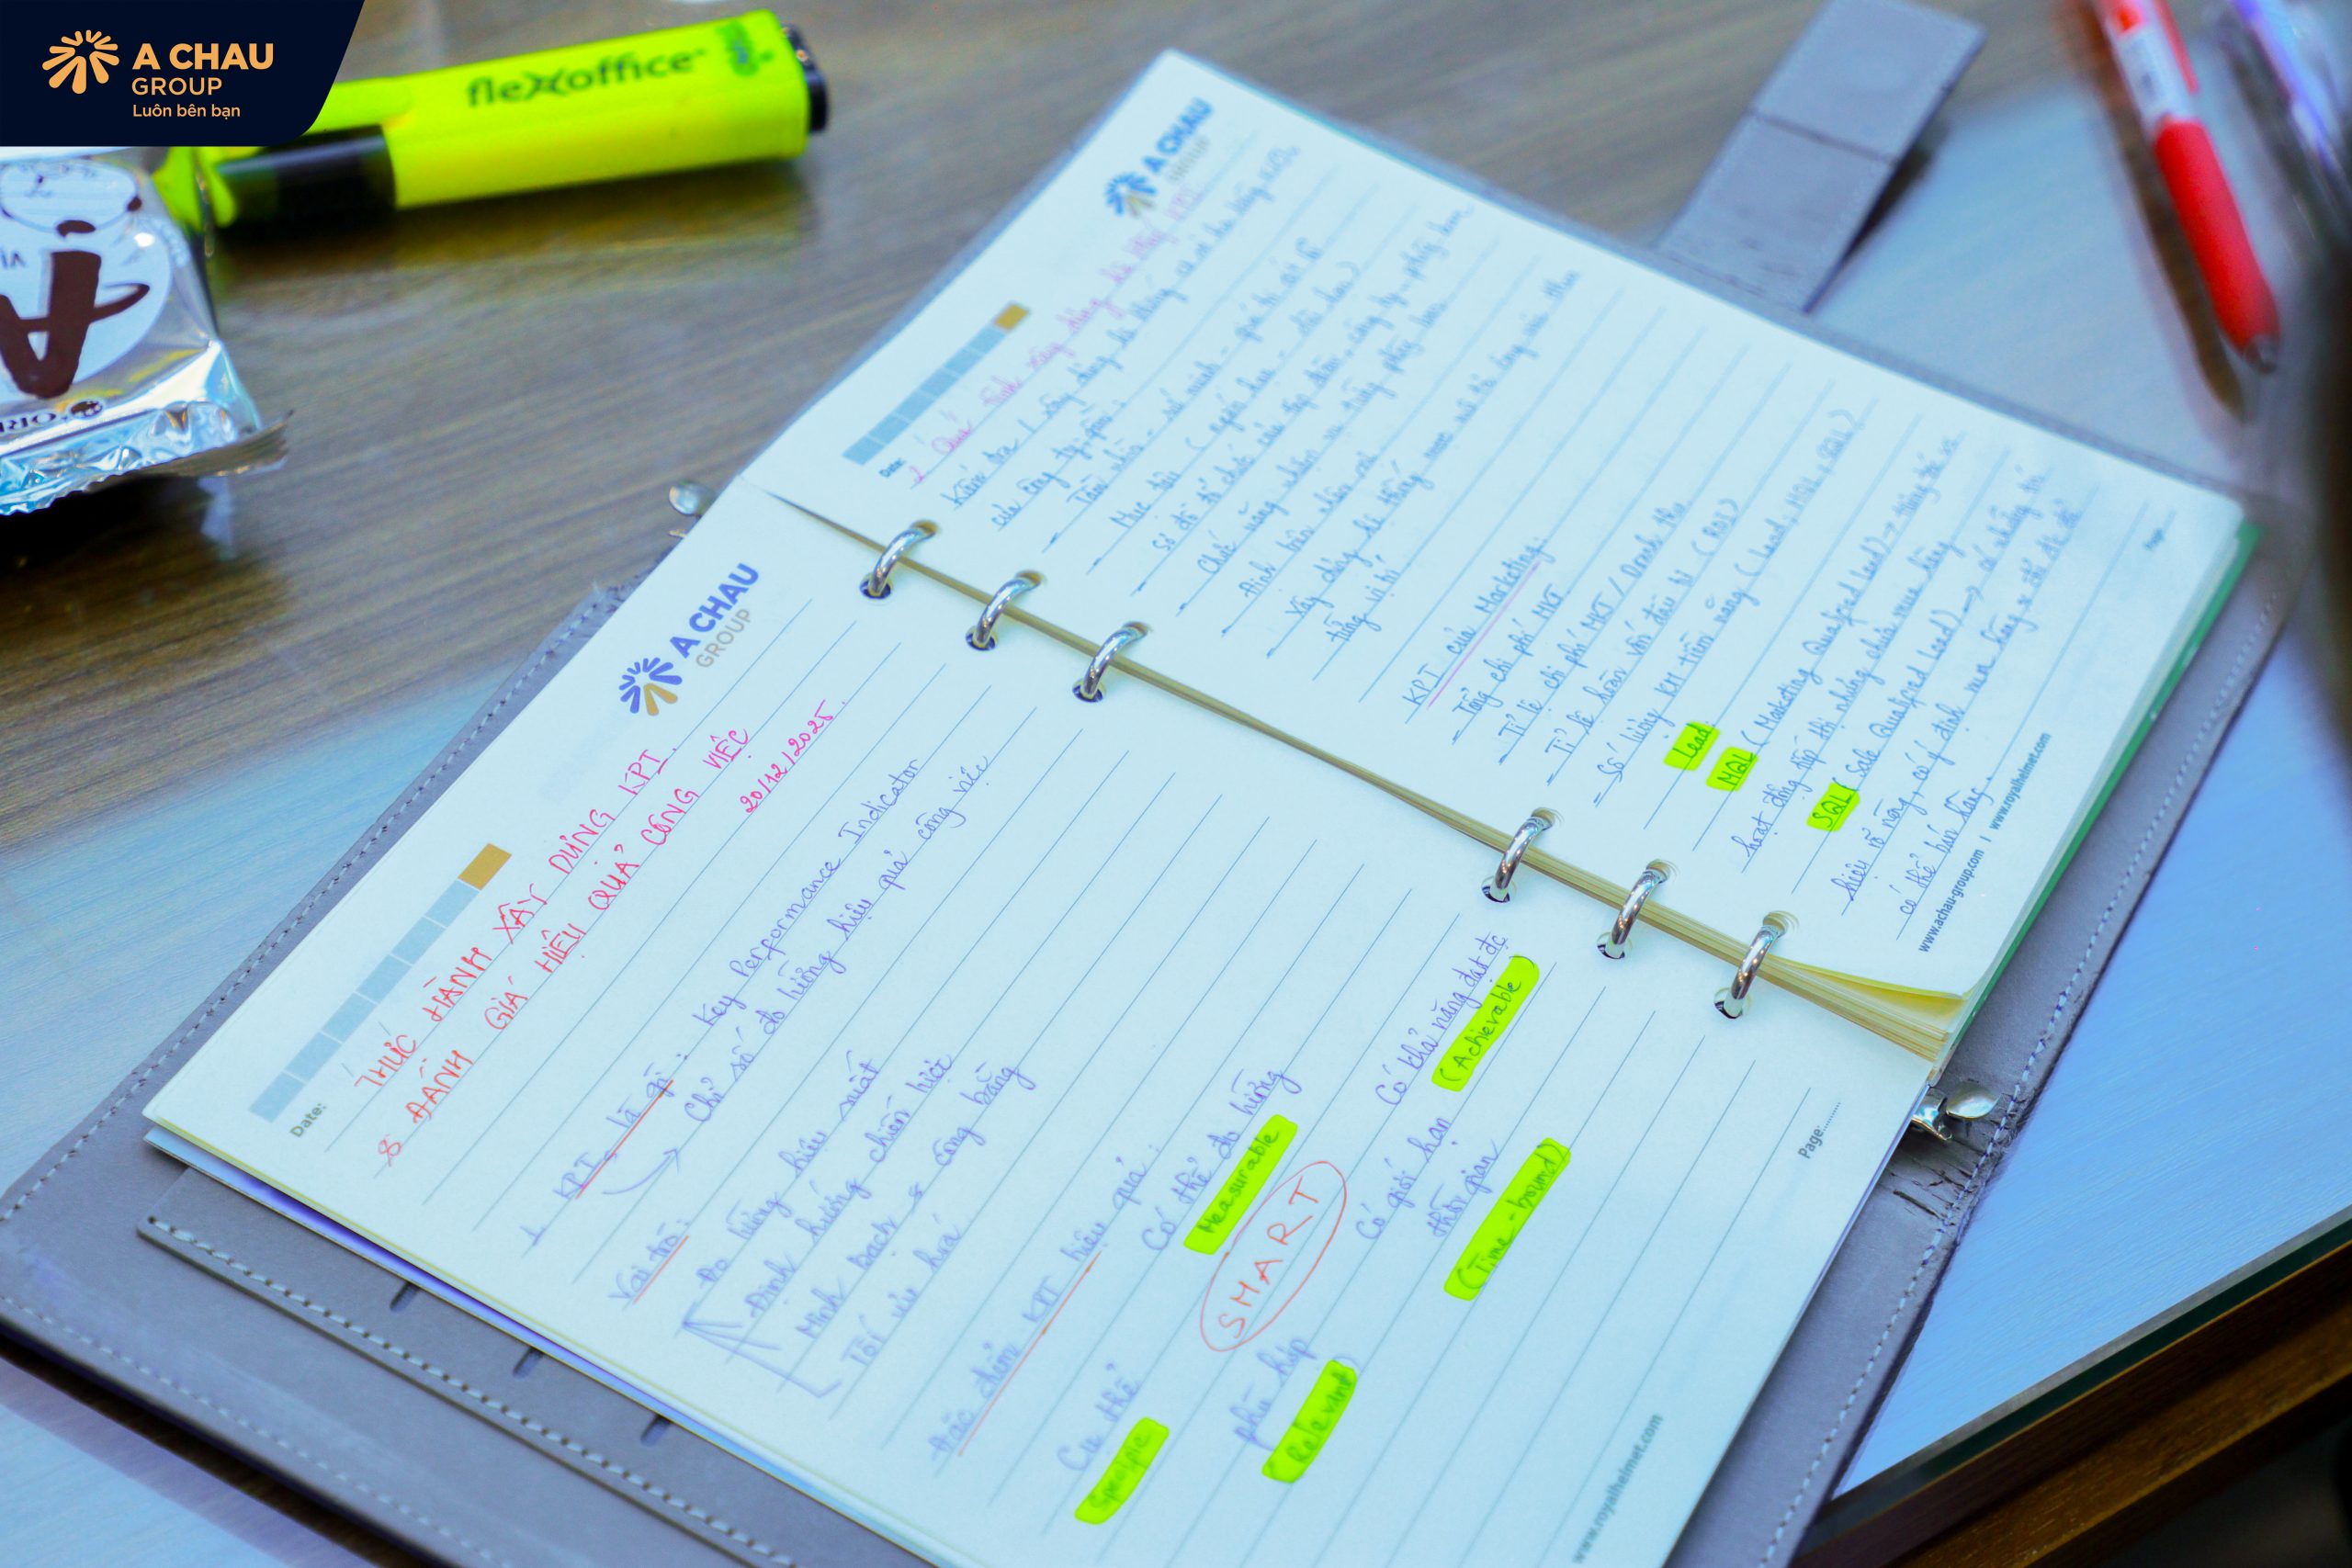 A CHAU
GROUP
Luôn bên bạn
flexoffice
A CHAU
GROUP
Date:
THỰC HÀNH XÂY DỰNG KPI
& ĐÁNH GIÁ HIỆU QUẢ CÔNG VIỆC
20/12/2025.
1. KPI là gì: Key Performance Indicator
Chỉ số đo lường hiệu quả công việc
Vai trò:
Đo lường hiệu suất
Định hướng chiến lược
Minh bạch & công bằng
Tối ưu hoá
Đặc điểm KPI hiệu quả:
Có thể đo lường
Measurable
Có khả năng đạt đc
(Achievable)
SMART
Cụ thể
Specipic
phù hợp
Relevant)
Có giới hạn
thời gian
(Time-bound)
Page:
www.royalhelmet.com
A CHAU
GROUP
Date:
2. Quá trình xây dựng hệ thống KPI
Kiểm tra / xây dựng hệ thống
của công ty gồm:
- Tầm nhìn - sứ mệnh - giá trị cốt lõi
- Mục tiêu (ngắn hạn - dài hạn)
- Sơ đồ tổ chức của tập đoàn, công ty - phòng ban
- Chức năng nhiệm vụ từng phòng ban
- Định biên nhân sự
- Xây dựng hệ thống mô tả công việc theo
từng vị trí
KPI của Marketing:
- Tổng chi phí MKT
- Tỉ lệ chi phí MKT / Doanh thu
- Tỉ lệ hoàn vốn đầu tư (ROI)
- Số lượng KH tiềm năng (Lead, MQL, SQL)
Lead:
MQL (Marketing Qualified Lead) → tương tác
hoạt động tiếp thị nhưng chưa mua hàng
SQL (Sale Qualified Lead) → có những
hiệu rõ ràng, có ý định mua hàng & đủ để
có thể bán hàng.
Page:
www.achau-group.com | www.royalhelmet.com